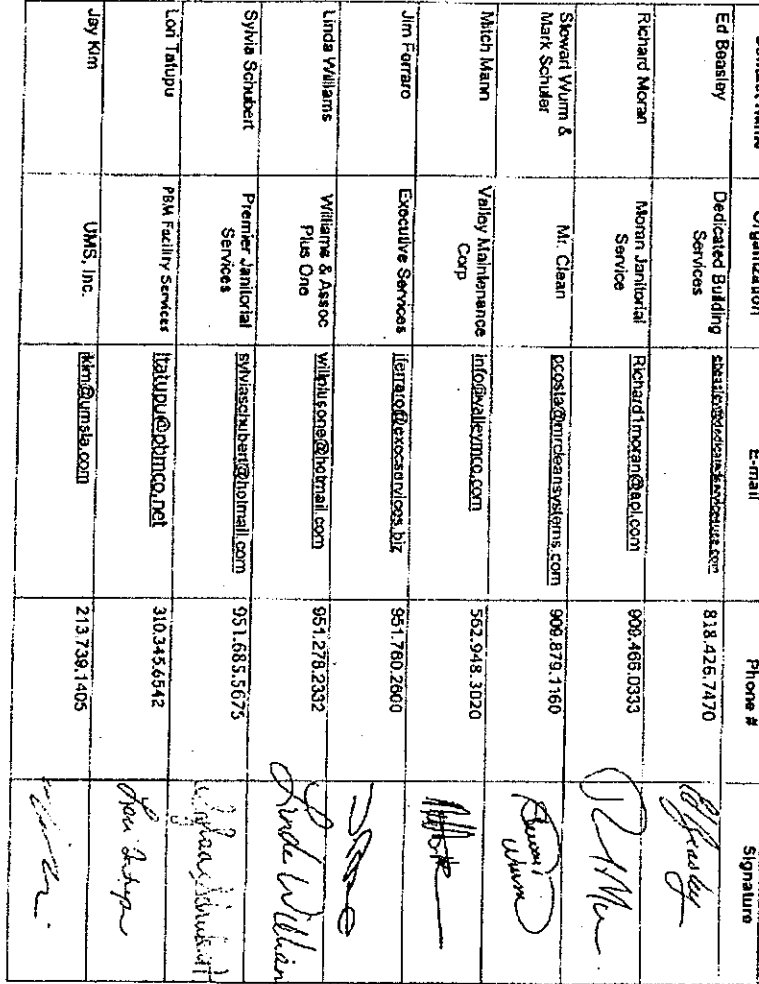 Organization E-mail Phone # Signature
Ed Beasley Dedicated Building Services 818.426.7470 Ed Beasley
Richard Moran Moran Janitorial Service Richard1moran@aol.com 909.466.0333
Stewart Wurm & Mark Schuler Mr. Clean pcosta@mrcleansystems.com 909.879.1160 Stewart Wurm
Mitch Mann Valley Maintenance Corp info@valleymco.com 562.948.3020
Jim Ferraro Executive Services jferraro@execservices.biz 951.760.2600
Linda Williams Williams & Assoc Plus One willplusone@hotmail.com 951.278.2332 Linda William
Sylvia Schubert Premier Janitorial Services sylviaschubert@hotmail.com 951.685.5675 Sylvia Schubert
Lori Tatupu PBM Facility Services ltatupu@pbmco.net 310.345.6542 Lori Tatupu
Jay Kim UMS, Inc. jkim@umsla.com 213.739.1405